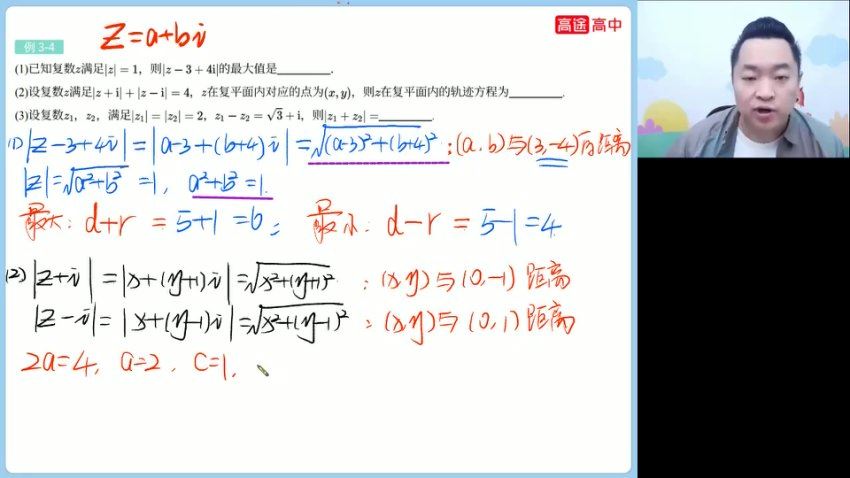 Z=a+bi
高途高中
例 3-4
(1)已知复数z满足|z| = 1，则|z − 3 + 4i|的最大值是________.
(2)设复数z满足|z + i| + |z − i| = 4，z在复平面内对应的点为(x, y)，则z在复平面内的轨迹方程为________.
(3)设复数z₁，z₂，满足|z₁| = |z₂| = 2，z₁ − z₂ = √3 + i，则|z₁ + z₂| =________.
(1) |Z-3+4i| = |a-3+(b+4)i| = √(a-3)²+(b+4)² : (a,b)与(3,-4)的距离
|Z|=√a²+b² =1, a²+b²=1.
最大: d+r = 5+1=6; 最小: d-r = 5-1=4.
(2) |Z+i| = |x+(y+1)i| = √x²+(y+1)² : (x,y)与(0,-1)距离
|Z-i| = |x+(y-1)i| = √x²+(y-1)² : (x,y)与(0,1)距离
2a=4, a=2, c=1,